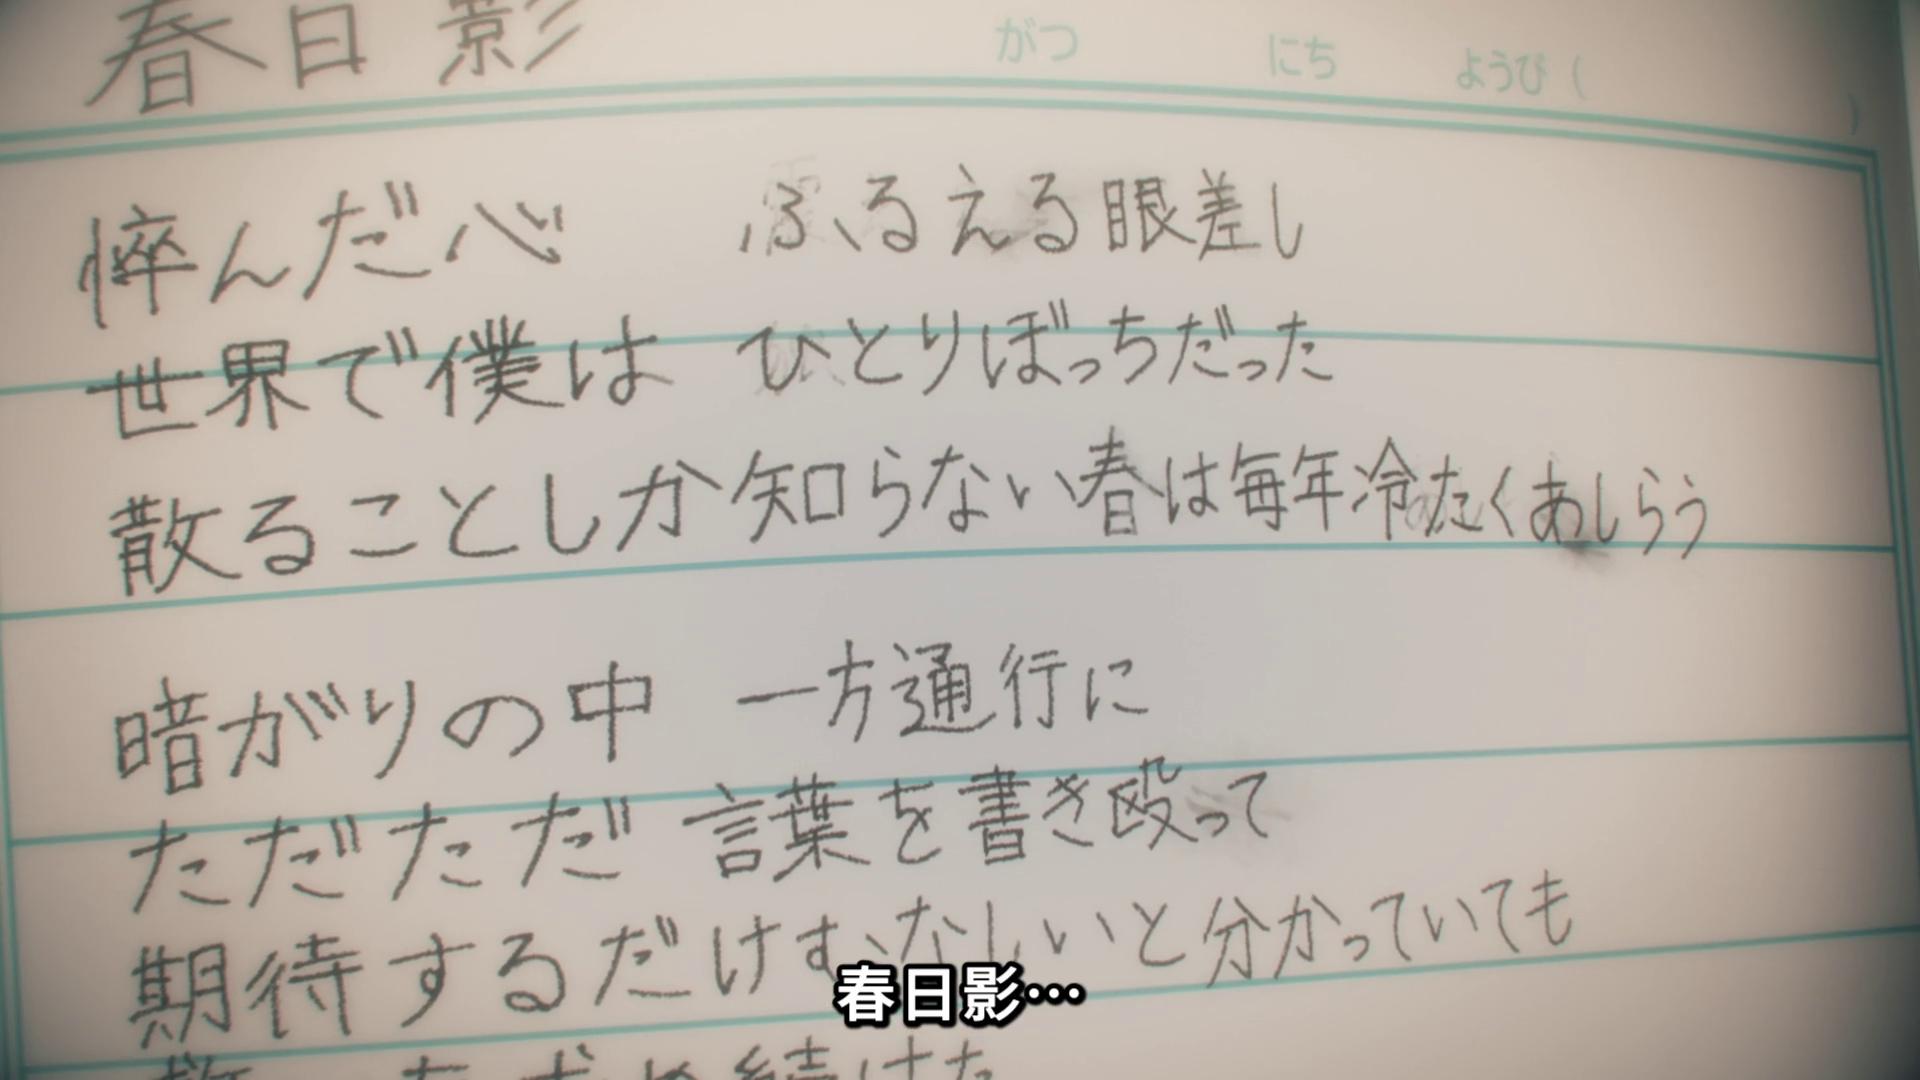 春日影
がつ にち ようび( )
悴んだ心 ふるえる眼差し
世界で僕は ひとりぼっちだった
散ることしか知らない春は毎年冷たくあしらう
暗がりの中 一方通行に
ただただ 言葉を書き殴って
期待するだけむなしいと分かっていても
求め続けた
春日影…